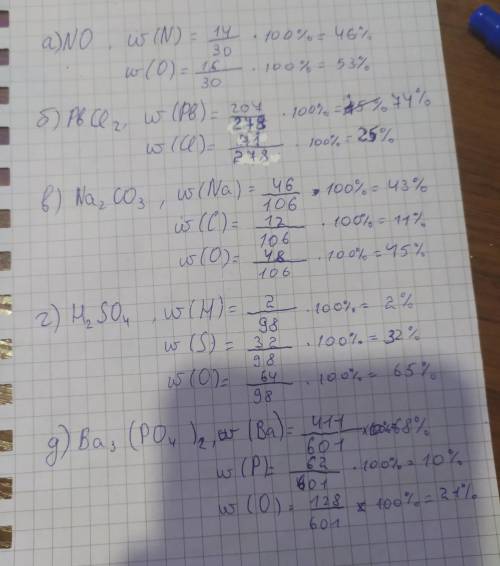 а) NO, w(N) = 14/30 · 100% = 46%
w(O) = 16/30 · 100% = 53%
б) PbCl₂, w(Pb) = 207/278 · 100% = 74%
w(Cl) = 71/278 · 100% = 25%
в) Na₂CO₃, w(Na) = 46/106 · 100% = 43%
w(C) = 12/106 · 100% = 11%
w(O) = 48/106 · 100% = 45%
г) H₂SO₄, w(H) = 2/98 · 100% = 2%
w(S) = 32/98 · 100% = 32%
w(O) = 64/98 · 100% = 65%
д) Ba₃(PO₄)₂, w(Ba) = 411/601 68%
w(P) = 62/601 · 100% = 10%
w(O) = 128/601 * 100% = 21%